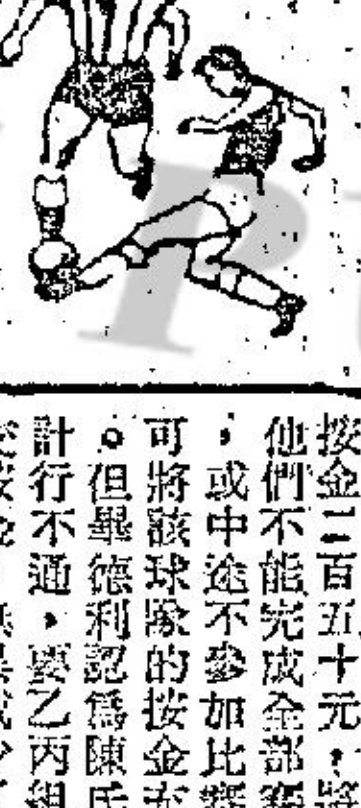 按金二百五十元，
他們不能完成全部賽
，或中途不參加比賽
可將該球隊的按金
。但畢德利認爲陳氏
計行不通，要乙丙組